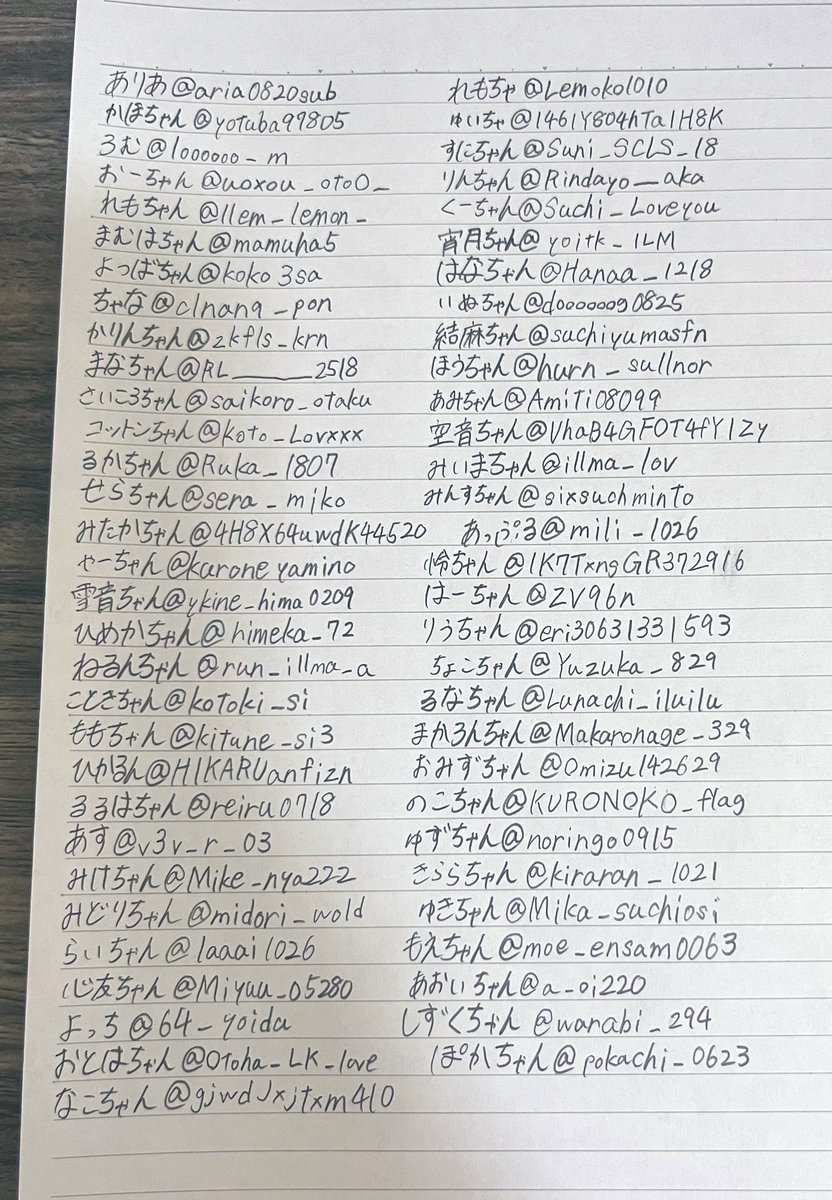 ありあ@aria0820sub れもちゃ@Lemoko1010
かほちゃん@yotuba99805 ゆいちゃ@1461Y804hTa1H8K
ろむ@loooooo_m すにちゃん@Suni_SCLS_18
おーちゃん@uoxou_otoO_ りんちゃん@Rindayo__aka
れもちゃん@llem_lemon_ くーちゃん@Suchi_Loveyou
まむはちゃん@mamuha5 宵月ちゃん@yoitk_ILM
よっばちゃん@koko3sa はなちゃん@Hanaa_1218
ちゃな@clnang_pon いぬちゃん@dooooooog0825
かりんちゃん@zkfls_krn 結麻ちゃん@suchiyumasfn
まなちゃん@RL______2518 ほうちゃん@hurn_sullnor
さいころちゃん@saikoro_otaku あみちゃん@AmiTi08099
コットンちゃん@koto_Lovxxx 空音ちゃん@VhaB4GFOT4fY1Zy
るかちゃん@Ruka_1807 みいまちゃん@illma_lov
せらちゃん@sera_miko みんすちゃん@sixsuchminto
みたかちゃん@4H8X64uwdK44520 あっぷる@mili_1026
やーちゃん@kuroneyamino 怜ちゃん@1K7TxngGR372916
雪音ちゃん@ykine_hima0209 はーちゃん@ZV96n
ひめかちゃん@himeka_72 りうちゃん@eri30631331593
ねるんちゃん@run_illma_a ちょこちゃん@Yuzuka_829
こときちゃん@kotoki_si るなちゃん@Lunachi_iluilu
ももちゃん@kitune_si3 まかろんちゃん@Makaronage_329
ひかるん@HIKARUanfizn おみずちゃん@Omizu142629
るるはちゃん@reiru0718 のこちゃん@KURONOKO_flag
あす@v3v_r_03 ゆずちゃん@noringo0915
みけちゃん@Mike_nya222 きららちゃん@kiraran_1021
みどりちゃん@midori_wold ゆきちゃん@Mika_suchiosi
らいちゃん@laaai1026 もえちゃん@moe_ensam0063
心友ちゃん@Miyuu_05280 あおいちゃん@a_oi220
よっち@64_yoida しずくちゃん@wanabi_294
おとはちゃん@Otoha_LK_love ぽかちゃん@pokachi_0623
なこちゃん@gjwdJxjtxm410